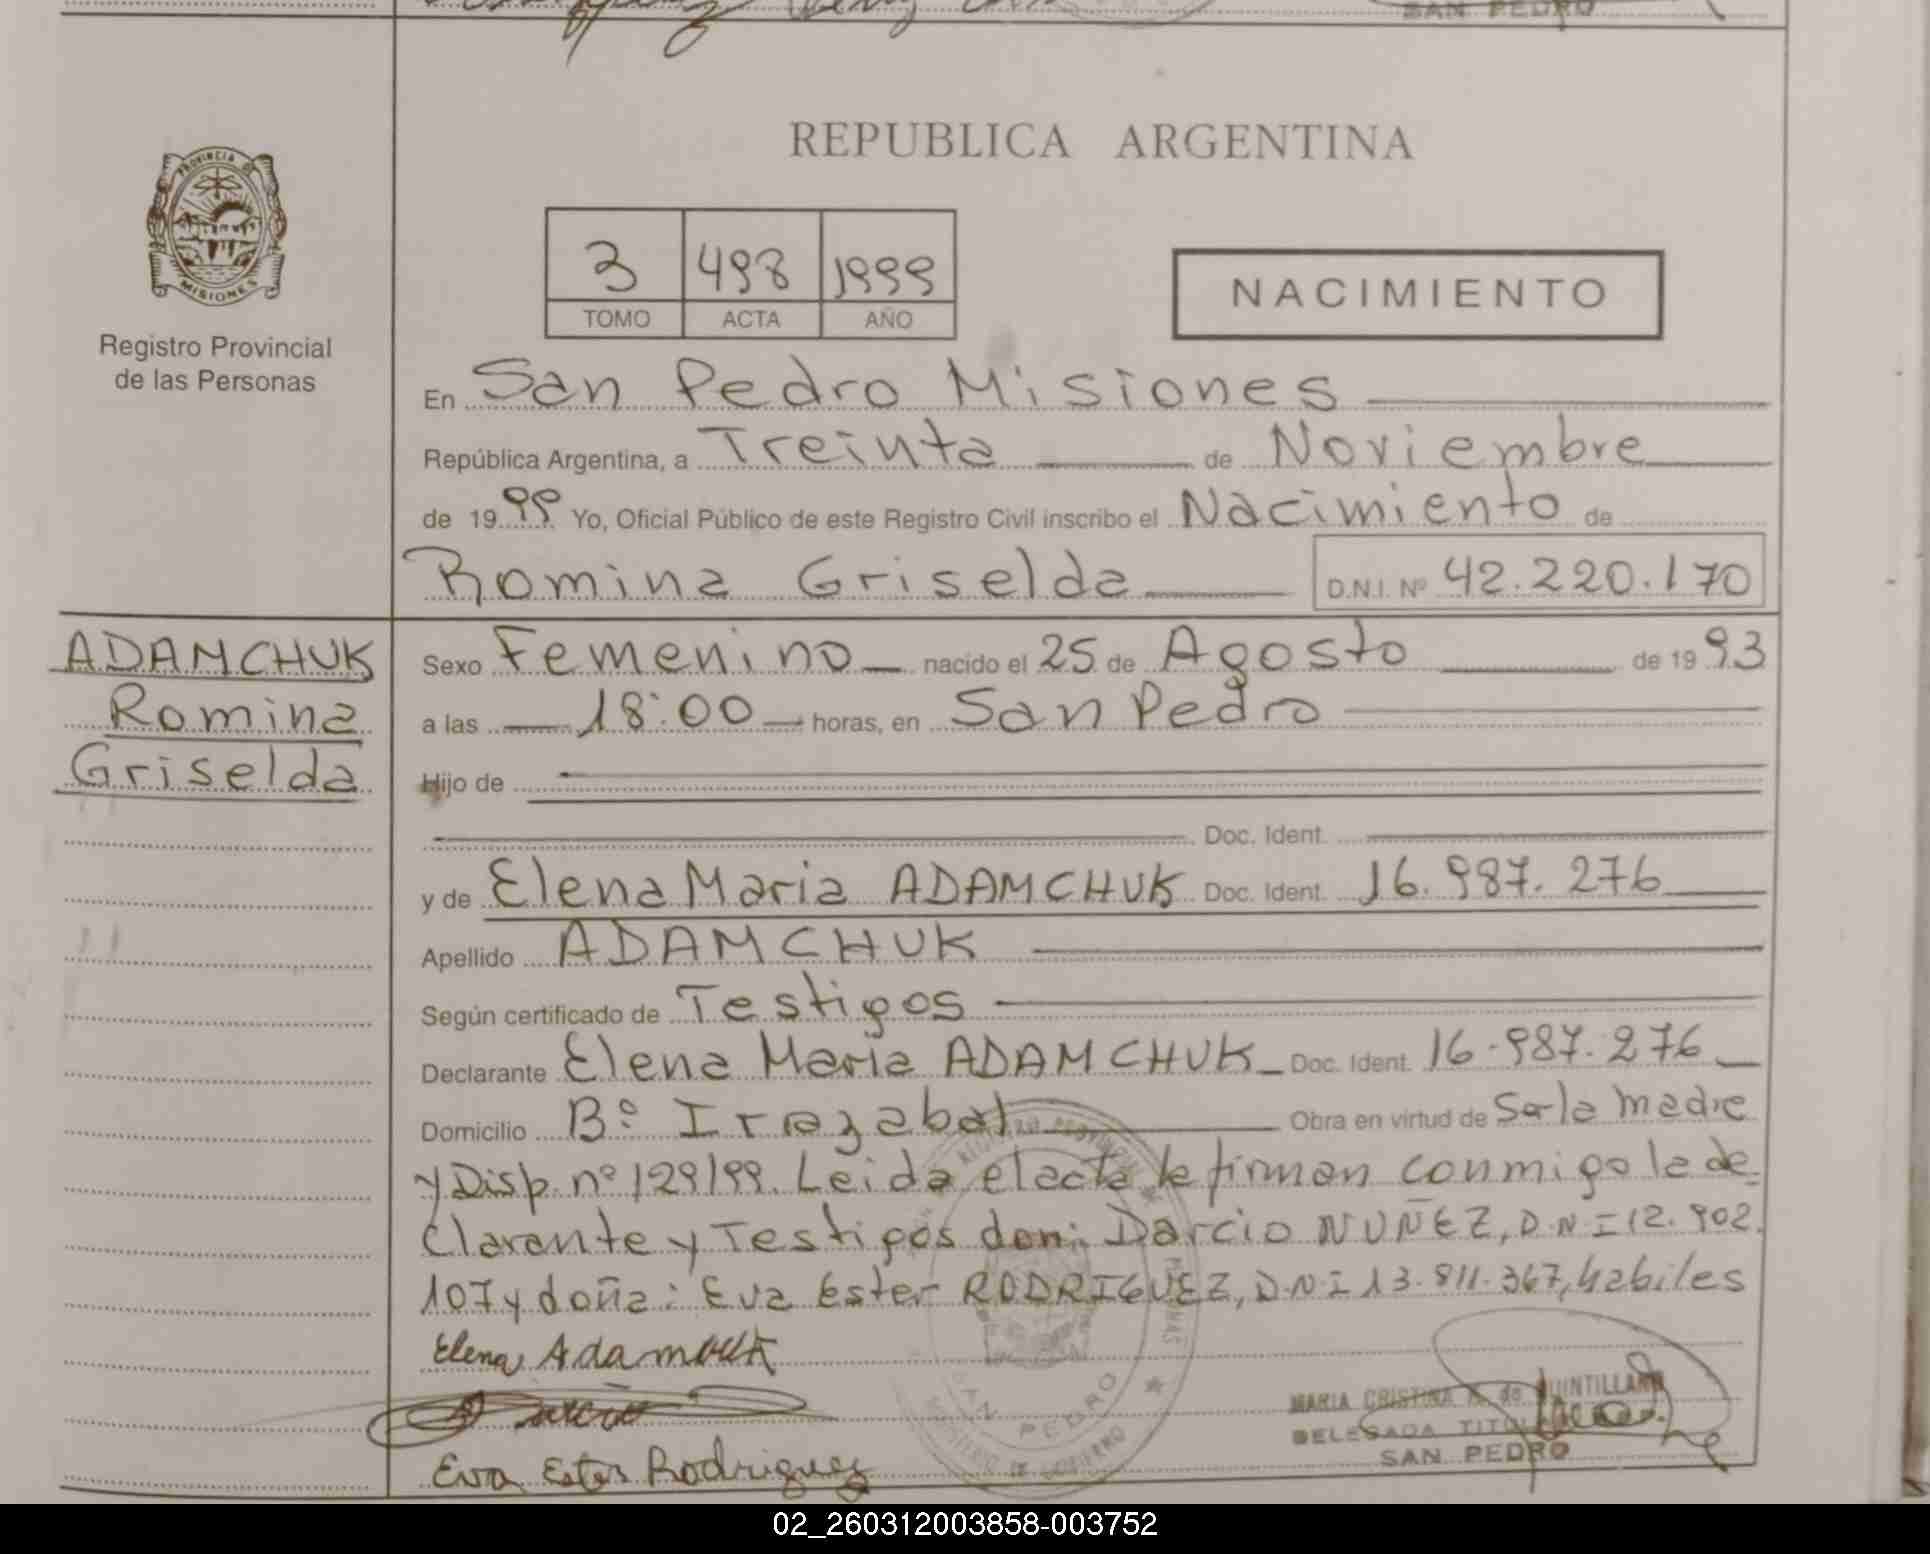 SAN PEDRO
REPUBLICA ARGENTINA
PROVINCIA DE
MISIONES
Registro Provincial
de las Personas
3 498 1999
TOMO ACTA AÑO
NACIMIENTO
En San Pedro Misiones
República Argentina, a Treinta de Noviembre
de 1999 Yo, Oficial Público de este Registro Civil inscribo el Nacimiento de
Romina Griselda D.N.I. Nº 42.220.170
ADAMCHUK
Romina
Griselda
Sexo Femenino nacido el 25 de Agosto de 1993
a las 18:00 horas, en San Pedro
Hijo de
Doc. Ident.
y de Elena Maria ADAMCHUK Doc. Ident. 16.987.276
Apellido ADAMCHUK
Según certificado de Testigos
Declarante Elena Maria ADAMCHUK Doc. Ident. 16.987.276
Domicilio Bº Irazabal Obra en virtud de Ser la madre
y Disp. nº 129/99. Leida el acta la firman conmigo la de
clarante y Testigos don: Darcio NUÑEZ, D.N.I 12.902.
107 y doña: Eva Ester RODRIGUEZ, D.N.I 13.811.367, habiles
Elena Adamchuk
Eva Ester Rodriguez
SAN PEDRO
MINISTERIO DE GOBIERNO
MARIA CRISTINA de QUINTILLAN
DELEGADA TITULAR
SAN PEDRO
02_260312003858-003752